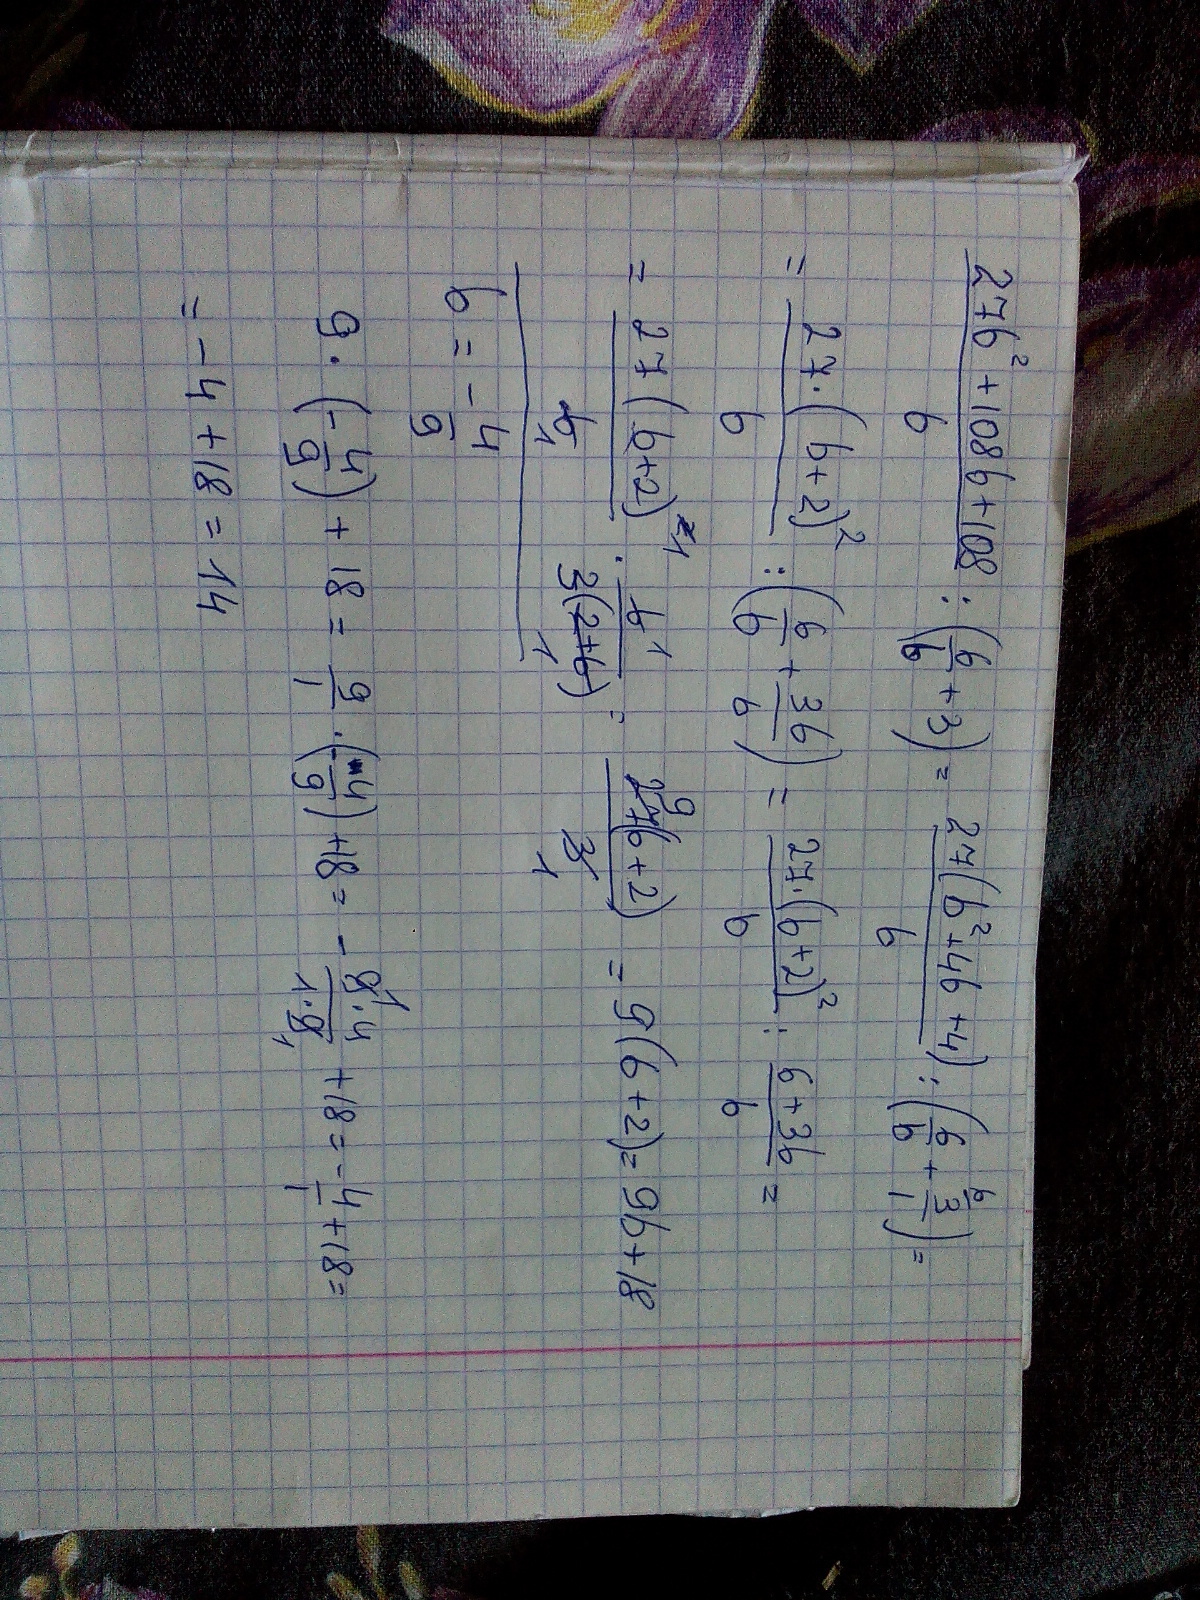 (27b² + 108b + 108)/b : (6/b + 3) = 27(b² + 4b + 4)/b : (6/b + 3/1 ᵇ) =
= 27·(b+2)²/b : (6/b + 3b/b) = 27·(b+2)²/b : (6+3b)/b =
= 27(b+2)/b 1 · b 1/3(2+b) 1 = 27 9 (b+2)/3 1 = 9(b+2) = 9b+18
b = -4/9
9·(-4/9) + 18 = 9/1·(-4/9) + 18 = - 9 1·4/1·9 1 + 18 = -4/1 + 18 =
= -4 + 18 = 14